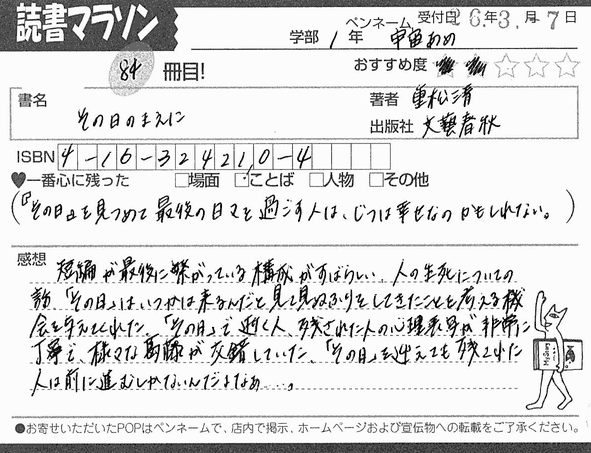 読書マラソン
ペンネーム 受付日 26年3月7日
学部 1年 宇宙あめ
84 冊目! おすすめ度 ☆☆☆☆☆
書名 その日のまえに
著者 重松清
出版社 文藝春秋
ISBN 4-16-324210-4
♥一番心に残った □場面 □ことば □人物 □その他
(『その日』を見つめて最後の日々を過ごす人は、じつは幸せなのかもしれない。)
感想
短編が最後に繋がっている構成がすばらしい。人の生死についての
話。「その日」はいつかは来るんだと見て見ぬふりをしてきたことを考える機
会を与えてくれた。「その日」で逝く人、残された人の心理表写が非常に
丁寧で、様々な葛藤が交錯していた。「その日」を迎えても残された
人は前に進むしかないんだよなぁ…。
●お寄せいただいたPOPはペンネームで、店内で掲示、ホームページおよび宣伝物への転載をご了承ください。